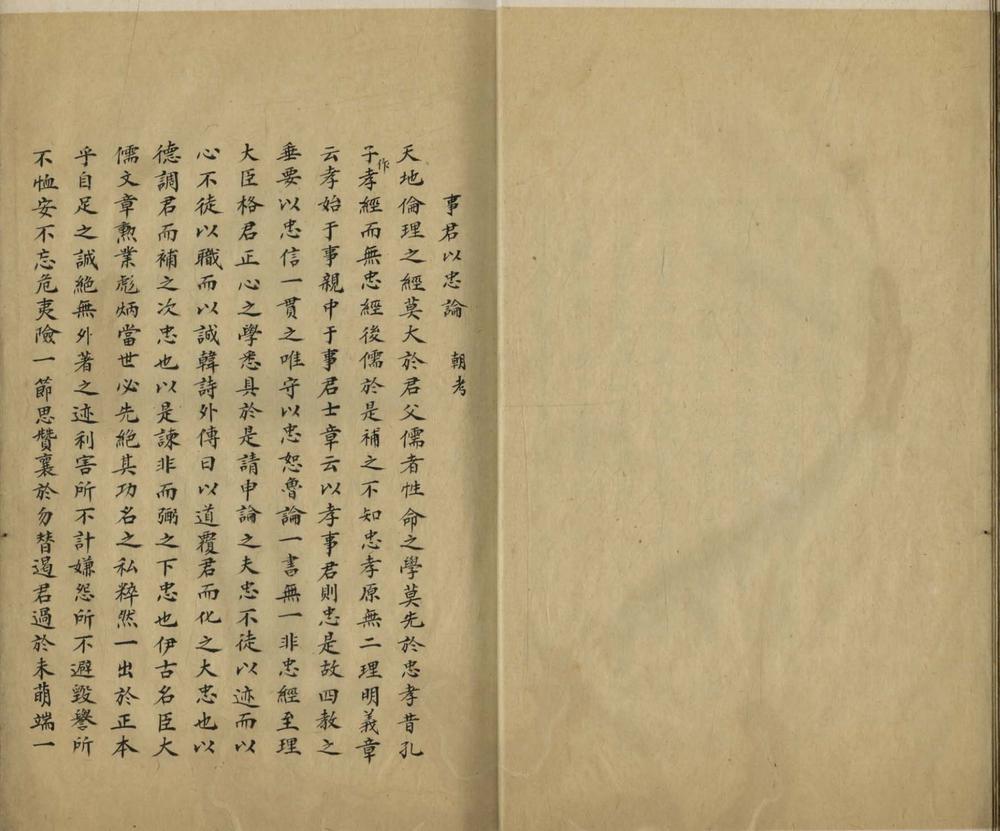 事君以忠論 朝考
天地倫理之經莫大於君父儒者性命之學莫先於忠孝昔孔
子作孝經而無忠經後儒於是補之不知忠孝原無二理明義章
云孝始于事親中于事君士章云以孝事君則忠是故四教之
垂要以忠信一貫之唯守以忠恕魯論一書無一非忠經至理
大臣格君正心之學悉具於是請申論之夫忠不徒以迹而以
心不徒以職而以誠韓詩外傳曰以道覆君而化之大忠也以
德調君而補之次忠也以是諫非而弼之下忠也伊古名臣大
儒文章勲業彪炳當世必先絕其功名之私粹然一出於正本
乎自足之誠絕無外著之迹利害所不計嫌怨所不避毀譽所
不恤安不忘危夷險一節思贊襄於勿替遏君過於未萌端一